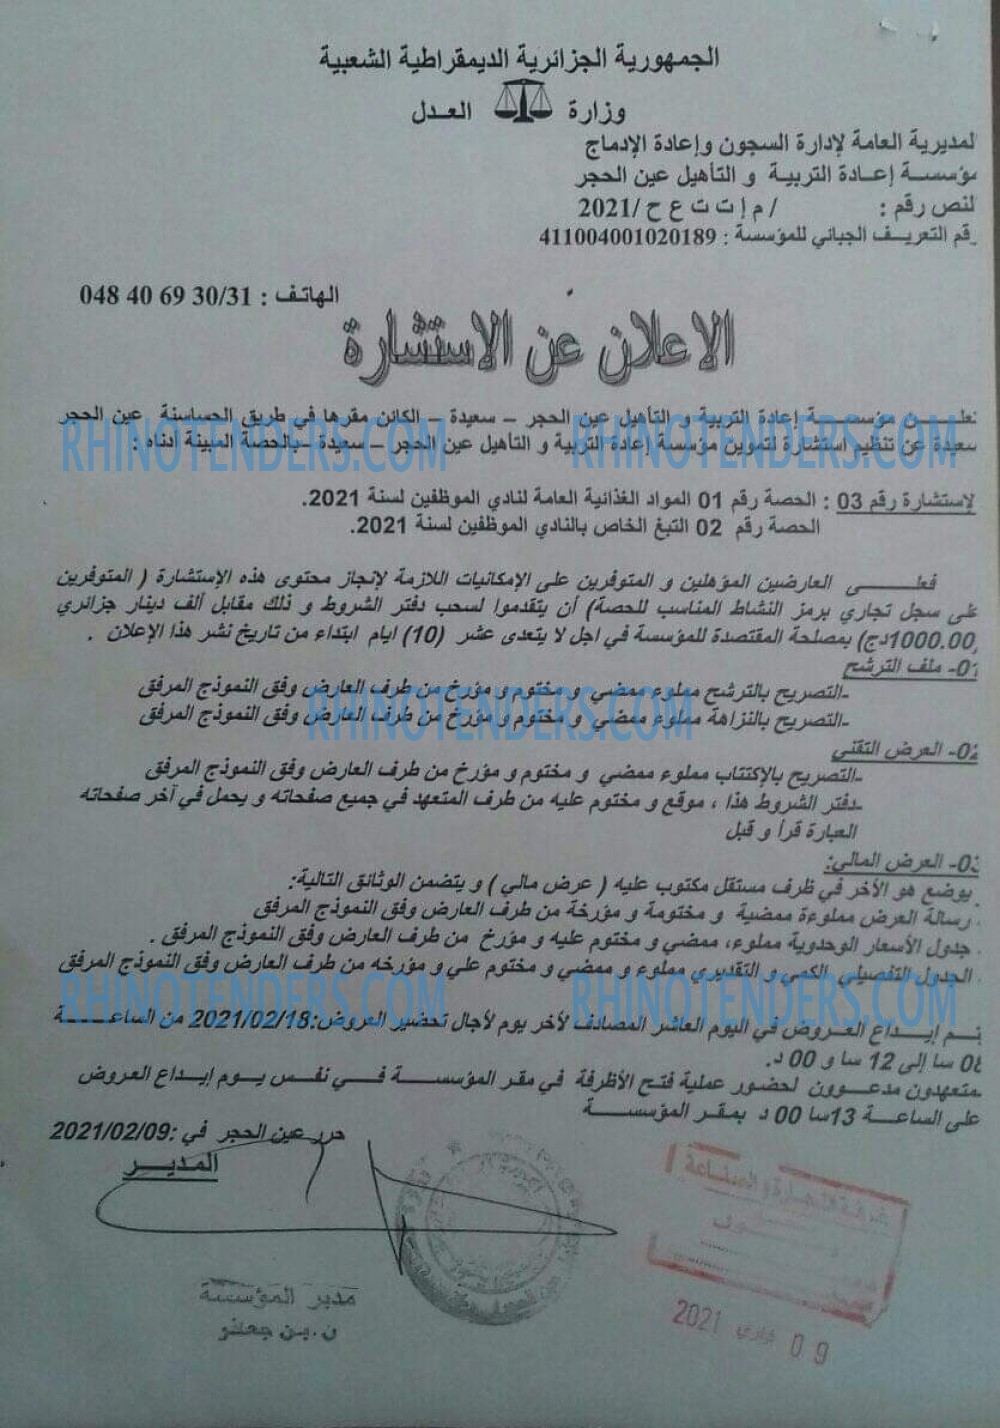 الجمهورية الجزائرية الديمقراطية الشعبية
وزارة العـدل
لمديرية العامة لإدارة السجون وإعادة الإدماج
مؤسســة إعـادة التربيـة و التأهيل عين الحجر
لنص رقم : / م إ ت ت ع ح /2021
رقم التعريـف الجبائي للمؤسسة : 411004001020189
الهاتـف : 048 40 69 30/31
الاعلان عن الاستشارة
تعلـــن مؤسســة إعادة التربية و التأهيل عين الحجر – سعيدة – الكائن مقرها في طريق الحساسنة عين الحجر
سعيدة عن تنظيم استشارة لتموين مؤسسة إعادة التربية و التأهيل عين الحجر – سعيدة –بالحصة المبينة أدناه :
RHINOTENDERS.COM RHINOTENDERS.COM
لإستشارة رقم 03 : الحصة رقم 01 المواد الغذائية العامة لنادي الموظفين لسنة 2021.
الحصة رقم 02 التبغ الخاص بالنادي الموظفين لسنة 2021.
فعلـــى العارضين المؤهلين و المتوفرين على الإمكانيات اللازمة لإنجاز محتوى هذه الإستشارة ( المتوفرين
على سجل تجاري برمز النشاط المناسب للحصة) أن يتقدموا لسحب دفتر الشروط و ذلك مقابل ألف دينار جزائري
(1000.00دج) بمصلحة المقتصدة للمؤسسة في اجل لا يتعدى عشر (10) ايام ابتداء من تاريخ نشر هذا الإعلان .
01- ملف الترشح
-التصريح بالترشح مملوء ممضي و مختوم و مؤرخ من طرف العارض وفق النموذج المرفق
-التصريح بالنزاهة مملوء ممضي و مختوم و مؤرخ من طرف العارض وفق النموذج المرفق
RHINOTENDERS.COM
02- العرض التقني
-التصريح بالإكتتاب مملوء ممضي و مختوم و مؤرخ من طرف العارض وفق النموذج المرفق
-دفتر الشروط هذا ، موقع و مختوم عليه من طرف المتعهد في جميع صفحاته و يحمل في آخر صفحاته
العبارة قرأ و قبل
03- العرض المالي:
يوضع هو الأخر في ظرف مستقل مكتوب عليه ( عرض مالي ) و يتضمن الوثائق التالية:
رسالة العرض مملوءة ممضية و مختومة و مؤرخة من طرف العارض وفق النموذج المرفق
جدول الأسعار الوحدوية مملوء، ممضي و مختوم عليه و مؤرخ من طرف العارض وفق النموذج المرفق .
الجدول التفصيلي الكمي و التقديري مملوء و ممضي و مختوم علي و مؤرخه من طرف العارض وفق النموذج المرفق
RHINOTENDERS.COM RHINOTENDERS.COM
يتـم إيـداع العـروض في اليوم العاشر المصادف لأخر يوم لأجال تحضير العروض:2021/02/18 من الساعـــة
08 سا إلى 12 سا و 00 د.
لمتعهدون مدعـوون لحضور عملية فتح الأظرفة في مقر المؤسســـة فـي نفس يـوم إيداع العروض
على الساعـة 13سا 00 د بمقـر المؤسســـة
حرر عين الحجر في :2021/02/09
المديــر
غرفة التجارة و الصناعة
مدير المؤسسة
ن.بن جعفر
09 فيفري 2021